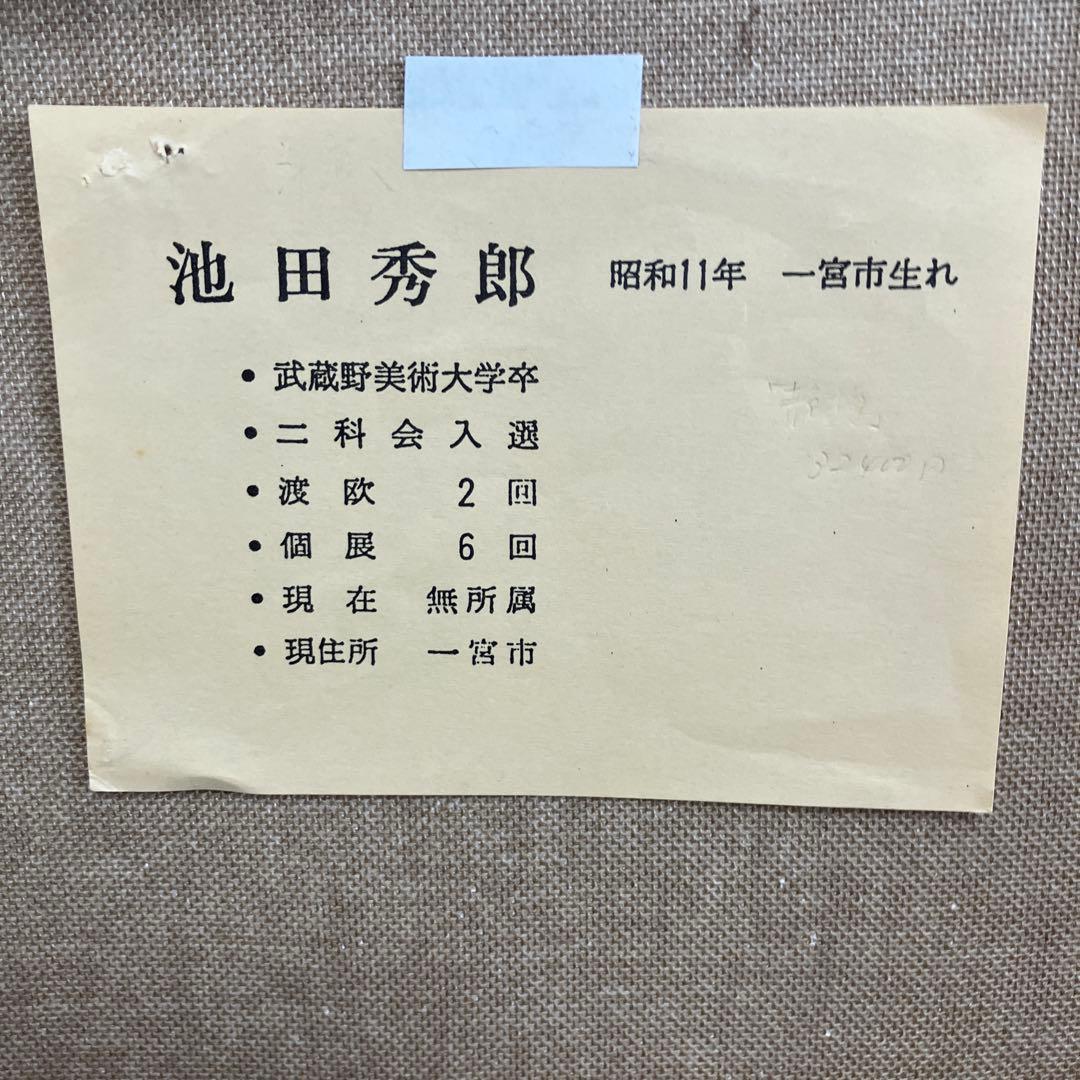 池田秀郎 昭和11年 一宮市生れ
• 武蔵野美術大学卒
• 二科会入選
• 渡欧 2回
• 個展 6回
• 現在 無所属
• 現住所 一宮市